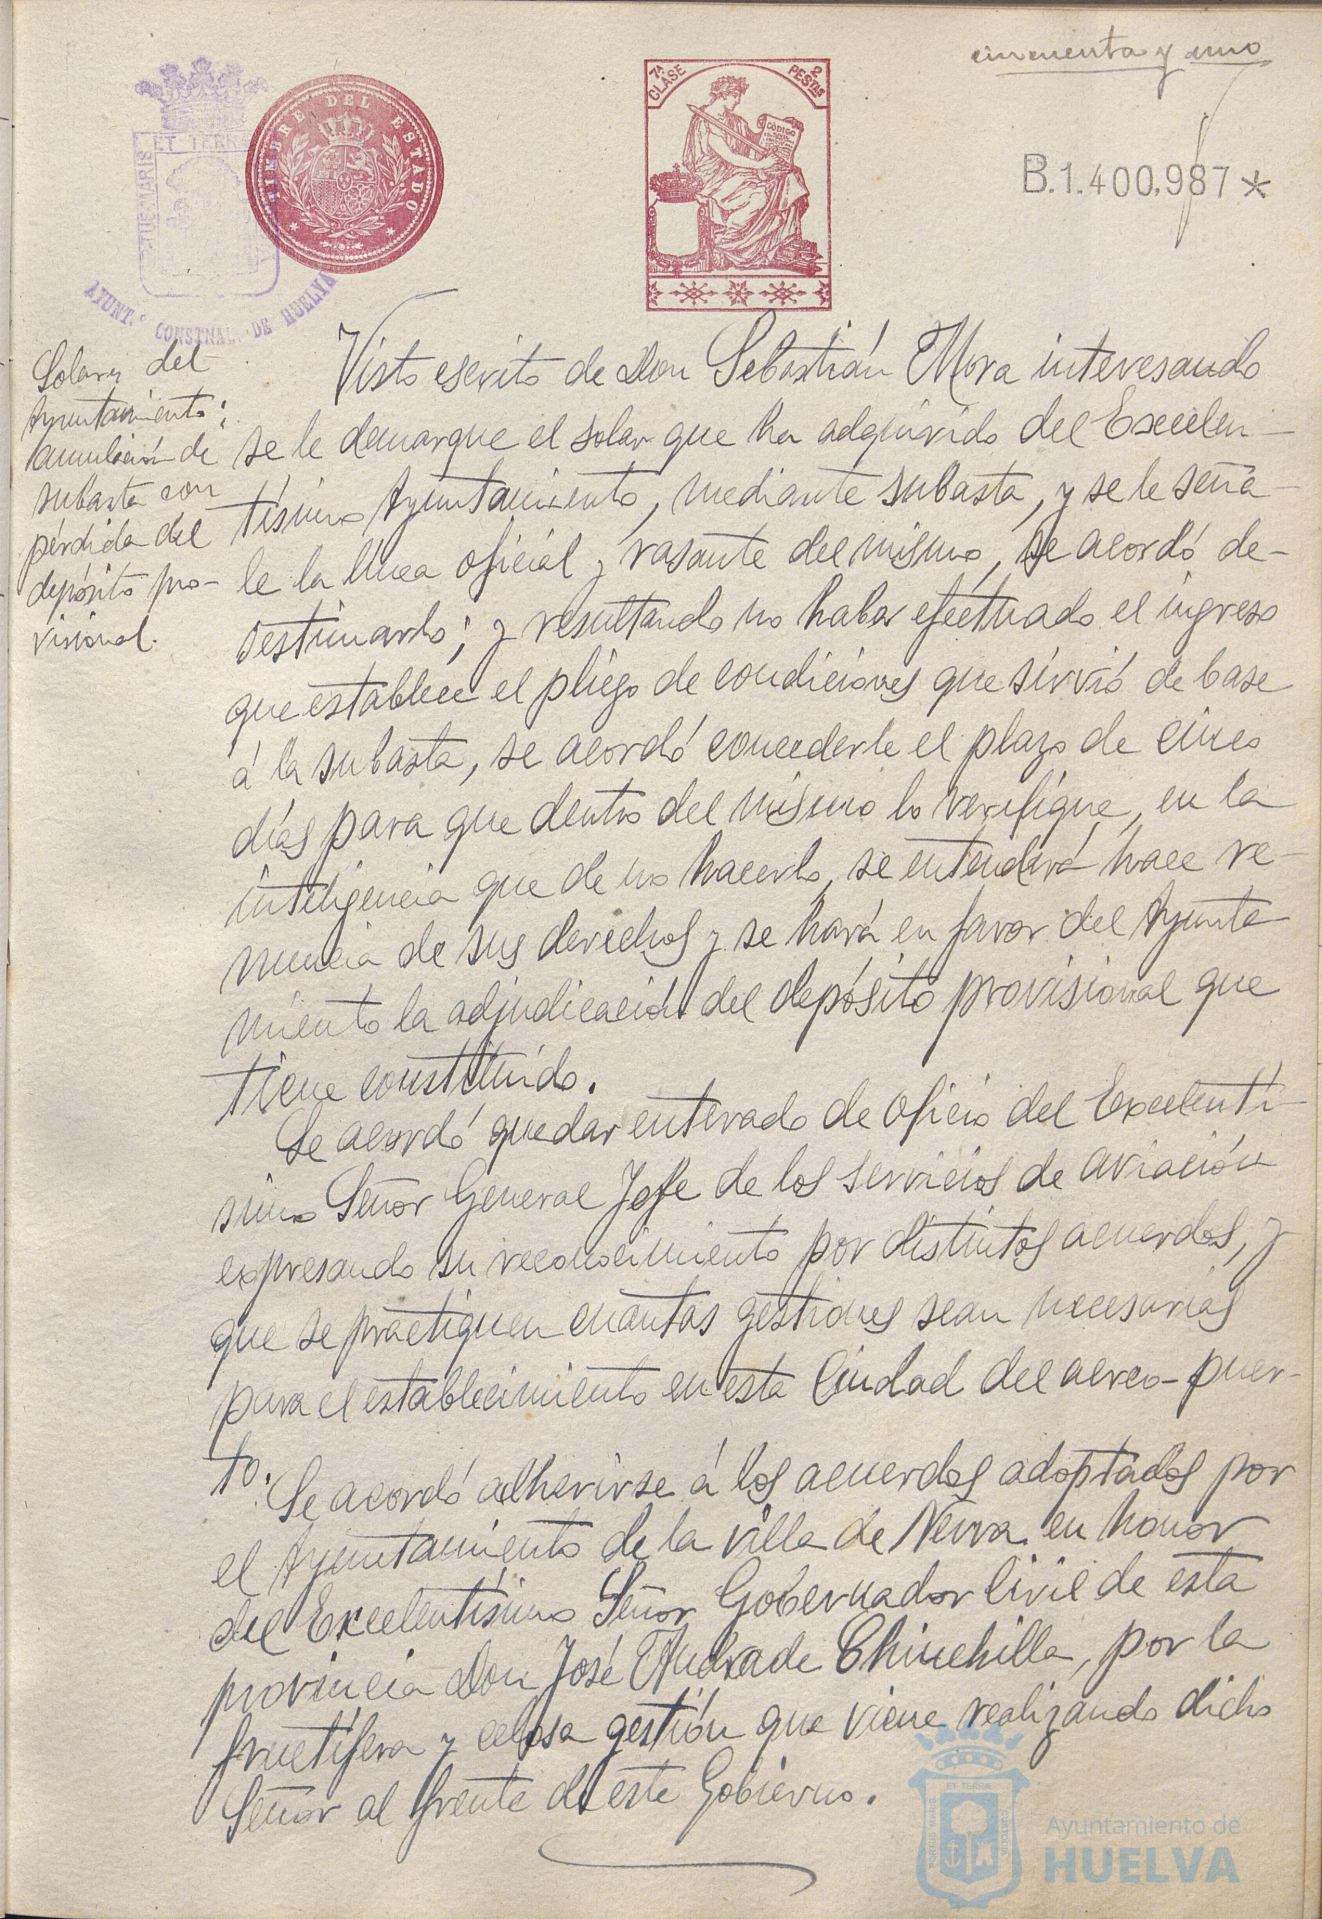 cincuenta y uno
7ª CLASE
2 PESTAS
CÓDIGO
TIMBRE DEL ESTADO
ET TERR
TUS MARIS
AYUNT.º CONSTNAL. DE HUELVA
B.1.400.987*
Solares del
Ayuntamiento;
anulación de
subasta con
pérdida del
depósito pro-
visional.
Visto escrito de Don Sebastián Mora interesando
se le demarque el solar que ha adquirido del Excelen-
tísimo Ayuntamiento, mediante subasta, y se le seña-
le la línea oficial y rasante del mismo, se acordó de-
sestimarlo; y resultando no haber efectuado el ingreso
que establece el pliego de condiciones que sirvió de base
á la subasta, se acordó concederle el plazo de cinco
días para que dentro del mismo lo verifique, en la
inteligencia que de no hacerlo, se entenderá hace re-
nuncia de sus derechos y se hará en favor del Ayunta
miento la adjudicación del depósito provisional que
tiene constituido.
Se acordó quedar enterado de oficio del Excelentí-
simo Señor General Jefe de los servicios de aviación
expresando su reconocimiento por distintos acuerdos, y
que se practiquen cuantas gestiones sean necesarias
para el establecimiento en esta Ciudad del aereo-puer-
to.
Se acordó adherirse á los acuerdos adoptados por
el Ayuntamiento de la villa de Nerva en honor
del Excelentísimo Señor Gobernador Civil de esta
provincia Don José Andrade Chinchilla, por la
fructífera y celosa gestión que viene realizando dicho
Señor al frente de este Gobierno.
ET TERRA
PORTUS MARIS
CUSTODIA
Ayuntamiento de
HUELVA